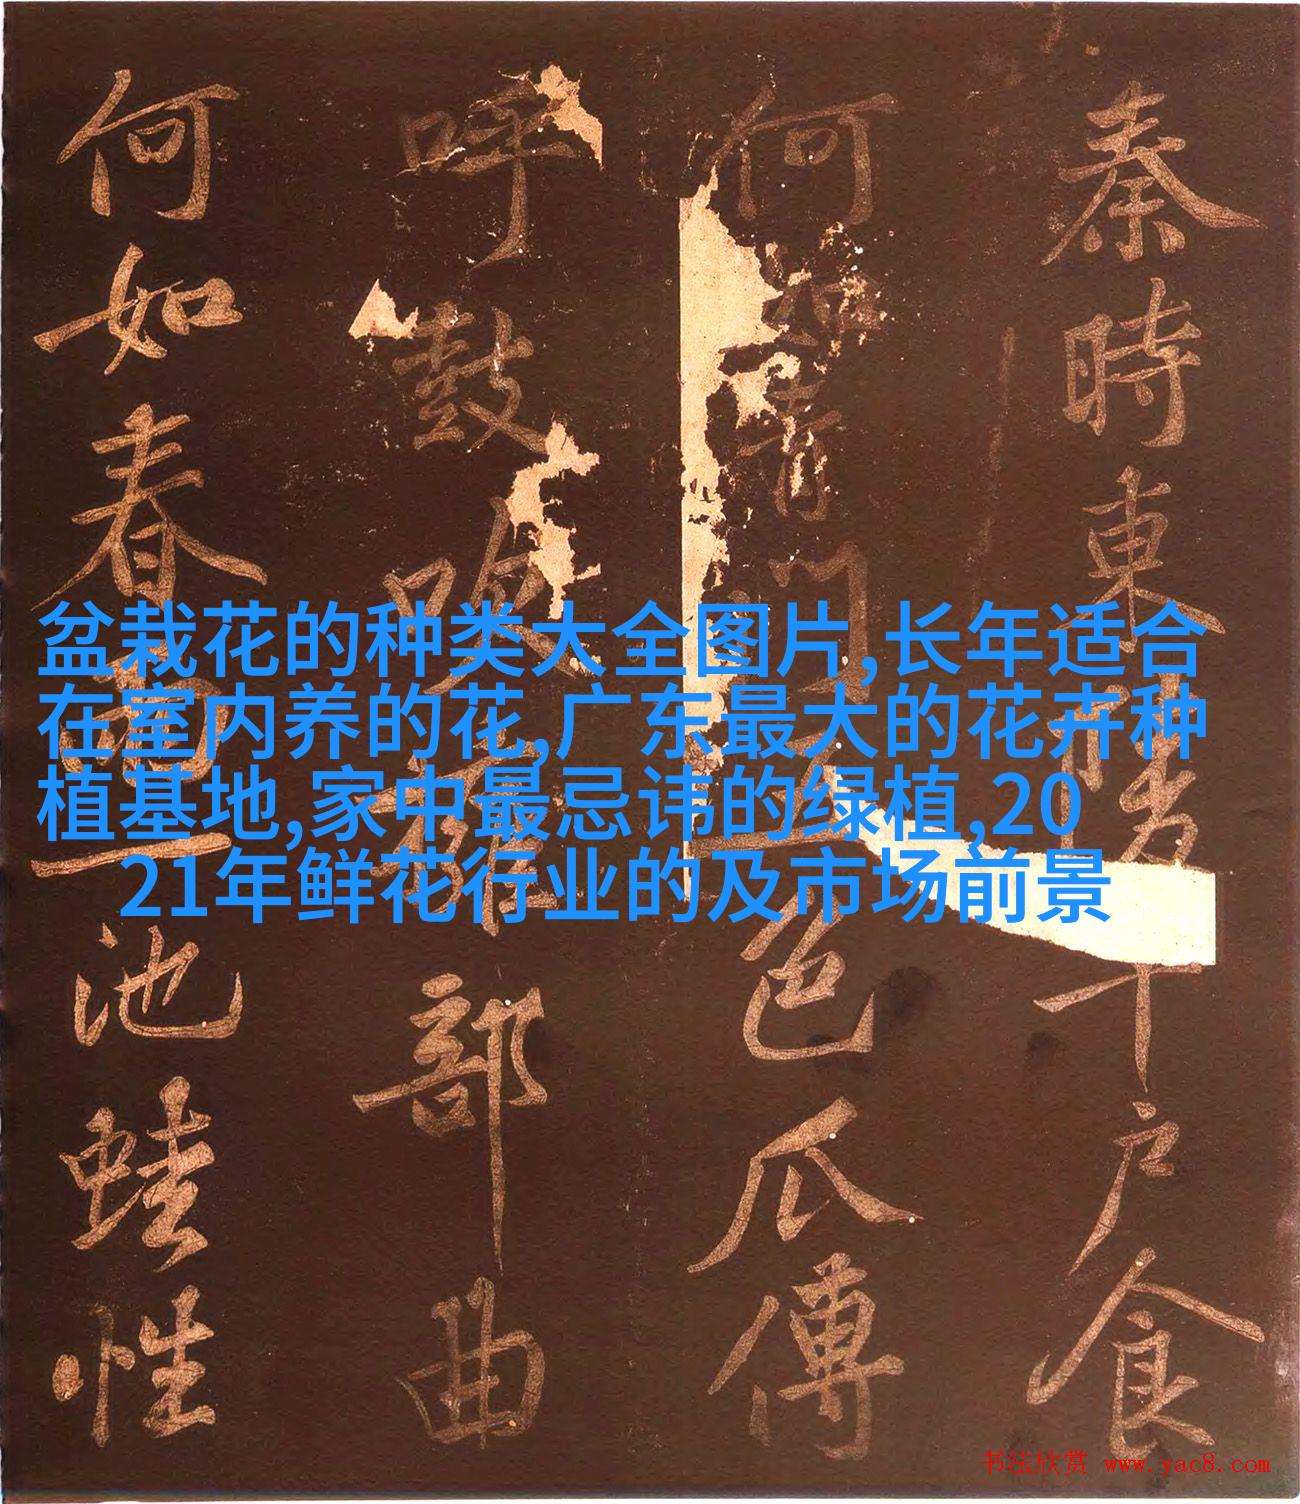 秦時東千戶食
何如青門色瓜傳
呼鼓吹部曲
何如春一池蛙性
盆栽花的种类大全图片,长年适合
在室内养的花,广东最大的花卉种
植基地,家中最忌讳的绿植,20
21年鲜花行业的及市场前景
书法欣赏 www.yac8.com